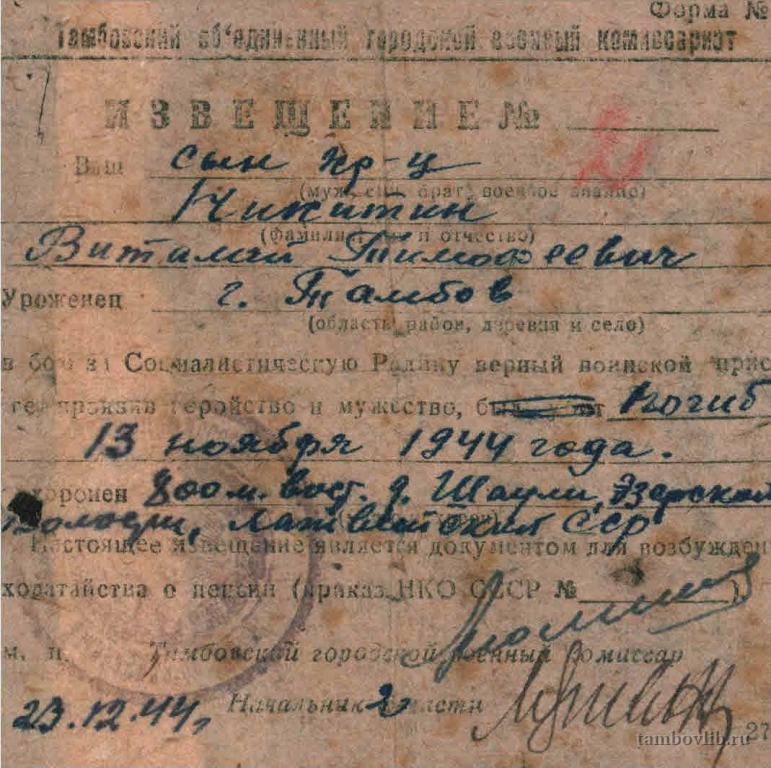 Форма №
Тамбовский об'единенный городской военный комиссариат
ИЗВЕЩЕНИЕ №
Ваш сын кр-ц
(муж, сын, брат, военное звание)
Никитин
(фамилия, имя и отчество)
Виталий Тимофеевич
Уроженец г. Тамбов
(область, район, деревня и село)
в бою за Социалистическую Родину верный воинской прис
ге, проявив геройство и мужество, был погиб
13 ноября 1944 года.
хоронен 800 м. вост. д. Шаули, Эзерской
волости, Латвийская ССР
Настоящее извещение является документом для возбужден
ходатайства о пенсии (приказ НКО СССР № )
м. п. Тамбовский городской военный комиссар
Начальник 2 части
23.12.44,
27
tambovlib.ru